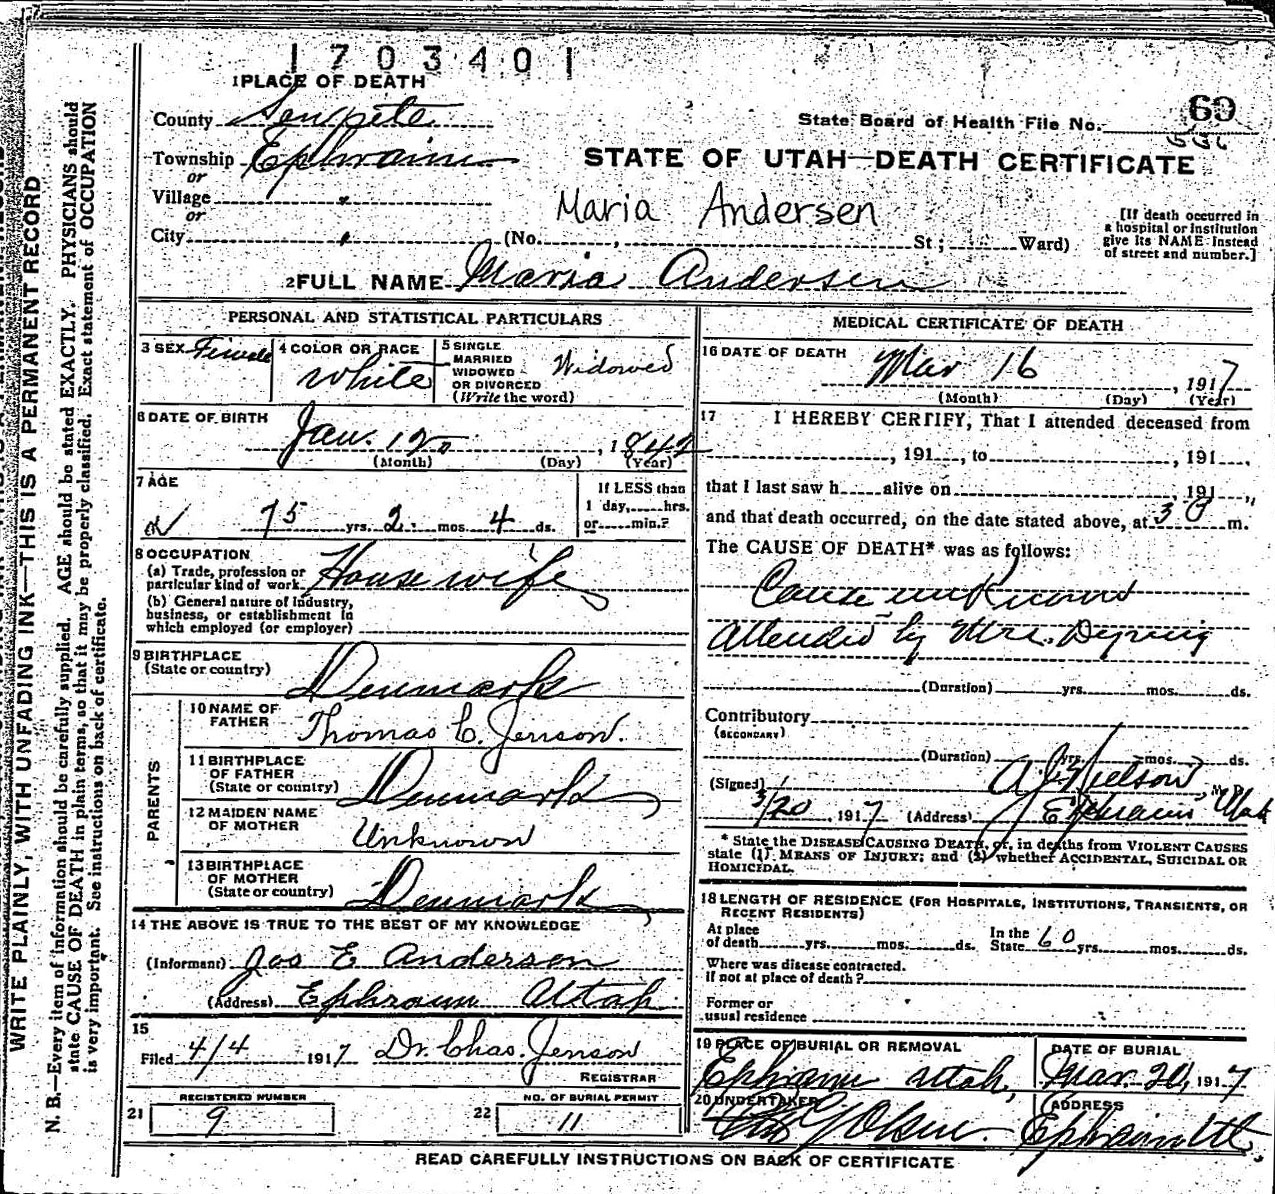 1703401
1 PLACE OF DEATH
County Sanpete
State Board of Health File No. 69
Township Ephraim
or
STATE OF UTAH—DEATH CERTIFICATE
Village "
or
Maria Andersen
City " (No. , St; Ward)
[If death occurred in a hospital or institution give its NAME instead of street and number.]
2 FULL NAME Maria Andersen
PERSONAL AND STATISTICAL PARTICULARS
3 SEX Female
4 COLOR OR RACE White
5 SINGLE MARRIED WIDOWED OR DIVORCED (Write the word) Widowed
6 DATE OF BIRTH
Jan. 12, 1842
(Month) (Day) (Year)
7 AGE
75 yrs. 2 mos. 4 ds.
If LESS than 1 day, hrs. or min.?
8 OCCUPATION
(a) Trade, profession or particular kind of work Housewife
(b) General nature of industry, business, or establishment in which employed (or employer)
9 BIRTHPLACE
(State or country) Denmark
PARENTS
10 NAME OF FATHER Thomas C. Jenson.
11 BIRTHPLACE OF FATHER (State or country) Denmark
12 MAIDEN NAME OF MOTHER Unknown
13 BIRTHPLACE OF MOTHER (State or country) Denmark
14 THE ABOVE IS TRUE TO THE BEST OF MY KNOWLEDGE
(Informant) Jos E Andersen
(Address) Ephraim Utah
15
Filed 4/4 1917 Dr. Chas. Jenson
REGISTRAR
21 REGISTERED NUMBER 9
22 NO. OF BURIAL PERMIT 11
MEDICAL CERTIFICATE OF DEATH
16 DATE OF DEATH
Mar 16, 1917
(Month) (Day) (Year)
17 I HEREBY CERTIFY, That I attended deceased from
, 191 , to , 191 ,
that I last saw h alive on , 191 ,
and that death occurred, on the date stated above, at m.
The CAUSE OF DEATH* was as follows:
Cause unknown
Attended by Mrs.
(Duration) yrs. mos. ds.
Contributory
(SECONDARY)
(Duration) yrs. mos. ds.
(Signed) Nielson, M.D.
3/20, 1917 (Address) Ephraim, Utah
* State the DISEASE CAUSING DEATH, or, in deaths from VIOLENT CAUSES
state (1) MEANS OF INJURY; and (2) whether ACCIDENTAL, SUICIDAL OR
HOMICIDAL.
18 LENGTH OF RESIDENCE (FOR HOSPITALS, INSTITUTIONS, TRANSIENTS, OR
RECENT RESIDENTS)
At place of death yrs. mos. ds. In the State 60 yrs. mos. ds.
Where was disease contracted.
if not at place of death?
Former or
usual residence
19 PLACE OF BURIAL OR REMOVAL
Ephraim Utah,
DATE OF BURIAL
Mar. 20, 1917
20 UNDERTAKER
Olsen.
ADDRESS
Ephraim Ut
READ CAREFULLY INSTRUCTIONS ON BACK OF CERTIFICATE
WRITE PLAINLY, WITH UNFADING INK—THIS IS A PERMANENT RECORD
N. B.—Every item of information should be carefully supplied. AGE should be stated EXACTLY. PHYSICIANS should
state CAUSE OF DEATH in plain terms, so that it may be properly classified. Exact statement of OCCUPATION
is very important. See instructions on back of certificate.